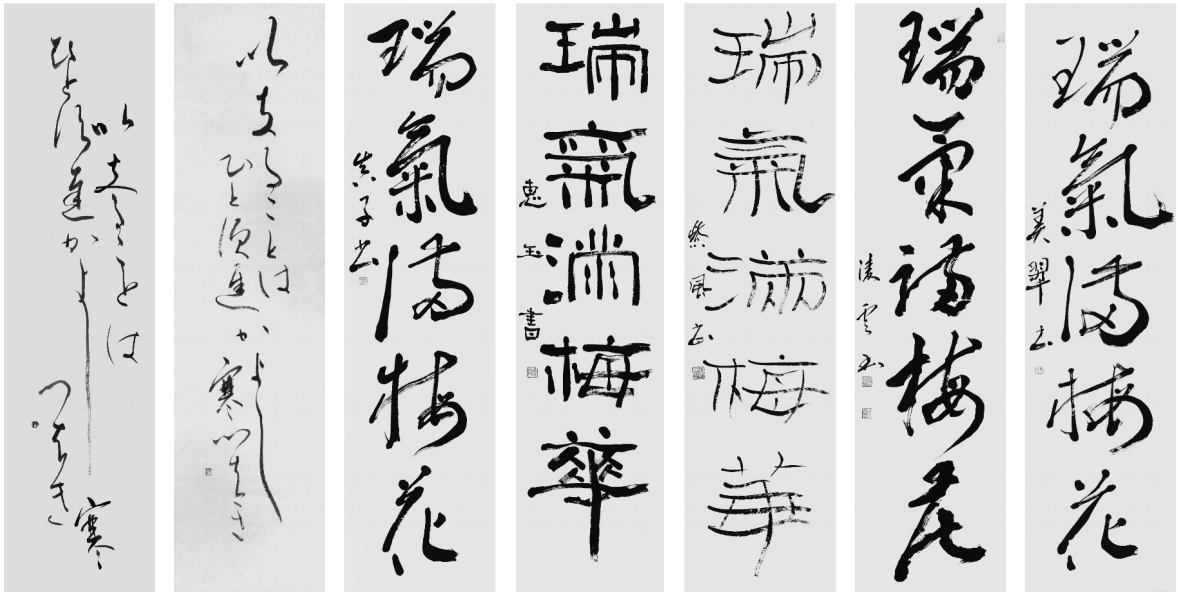 瑞氣満梅花
美翠書
瑞氣満梅花
凌雲書
瑞氣満梅華
風書
瑞氣満梅華
恵玉書
瑞氣満梅花
真子書
以支ることは
ひと須遅かよし
寒つ者き
以支ることは
ひと須遅かよし
寒
つ者き